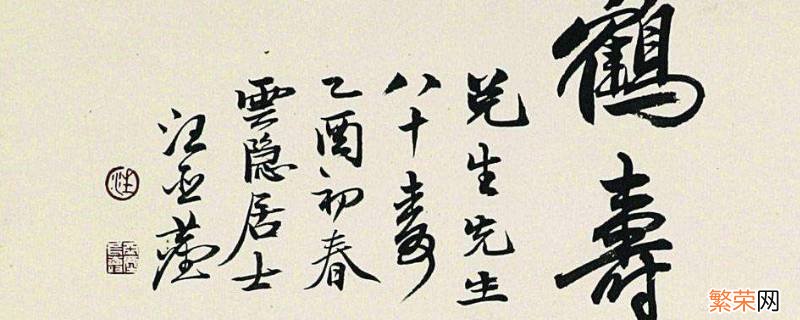 鶴壽
兑生先生
八十壽
乙酉初春
雲隐居士
汪亞塵
汪
繁荣网